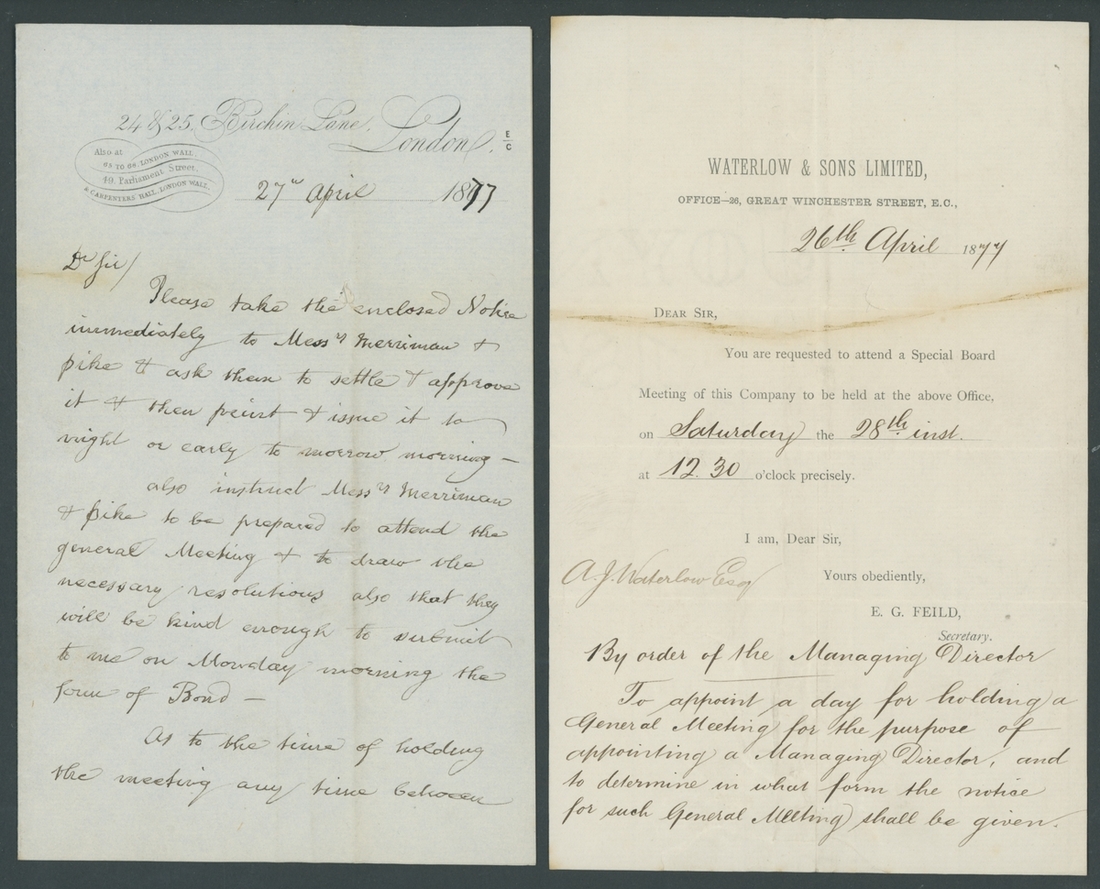 24 & 25, Birchin Lane,
London. E/C
Also at
65 TO 68, LONDON WALL.
49, Parliament Street,
& CARPENTERS' HALL, LONDON WALL.
27th April 1877
Dr Sir/
Please take the enclosed Notice
immediately to Messrs Merriman &
pike & ask them to settle & approve
it & then print & issue it to
night or early to morrow morning —
also instruct Messrs Merriman
& pike to be prepared to attend the
general Meeting & to draw the
necessary resolutions also that they
will be kind enough to submit
to me on Monday morning the
form of Bond —
As to the time of holding
the meeting any time between
WATERLOW & SONS LIMITED,
OFFICE—26, GREAT WINCHESTER STREET, E.C.,
26th April 1877
DEAR SIR,
You are requested to attend a Special Board
Meeting of this Company to be held at the above Office,
on Saturday the 28th inst.
at 12.30 o'clock precisely.
I am, Dear Sir,
A. J. Waterlow Esq
Yours obediently,
E. G. FEILD,
Secretary.
By order of the Managing Director
To appoint a day for holding a
General Meeting for the purpose of
appointing a Managing Director, and
to determine in what form the notice
for such General Meeting shall be given.